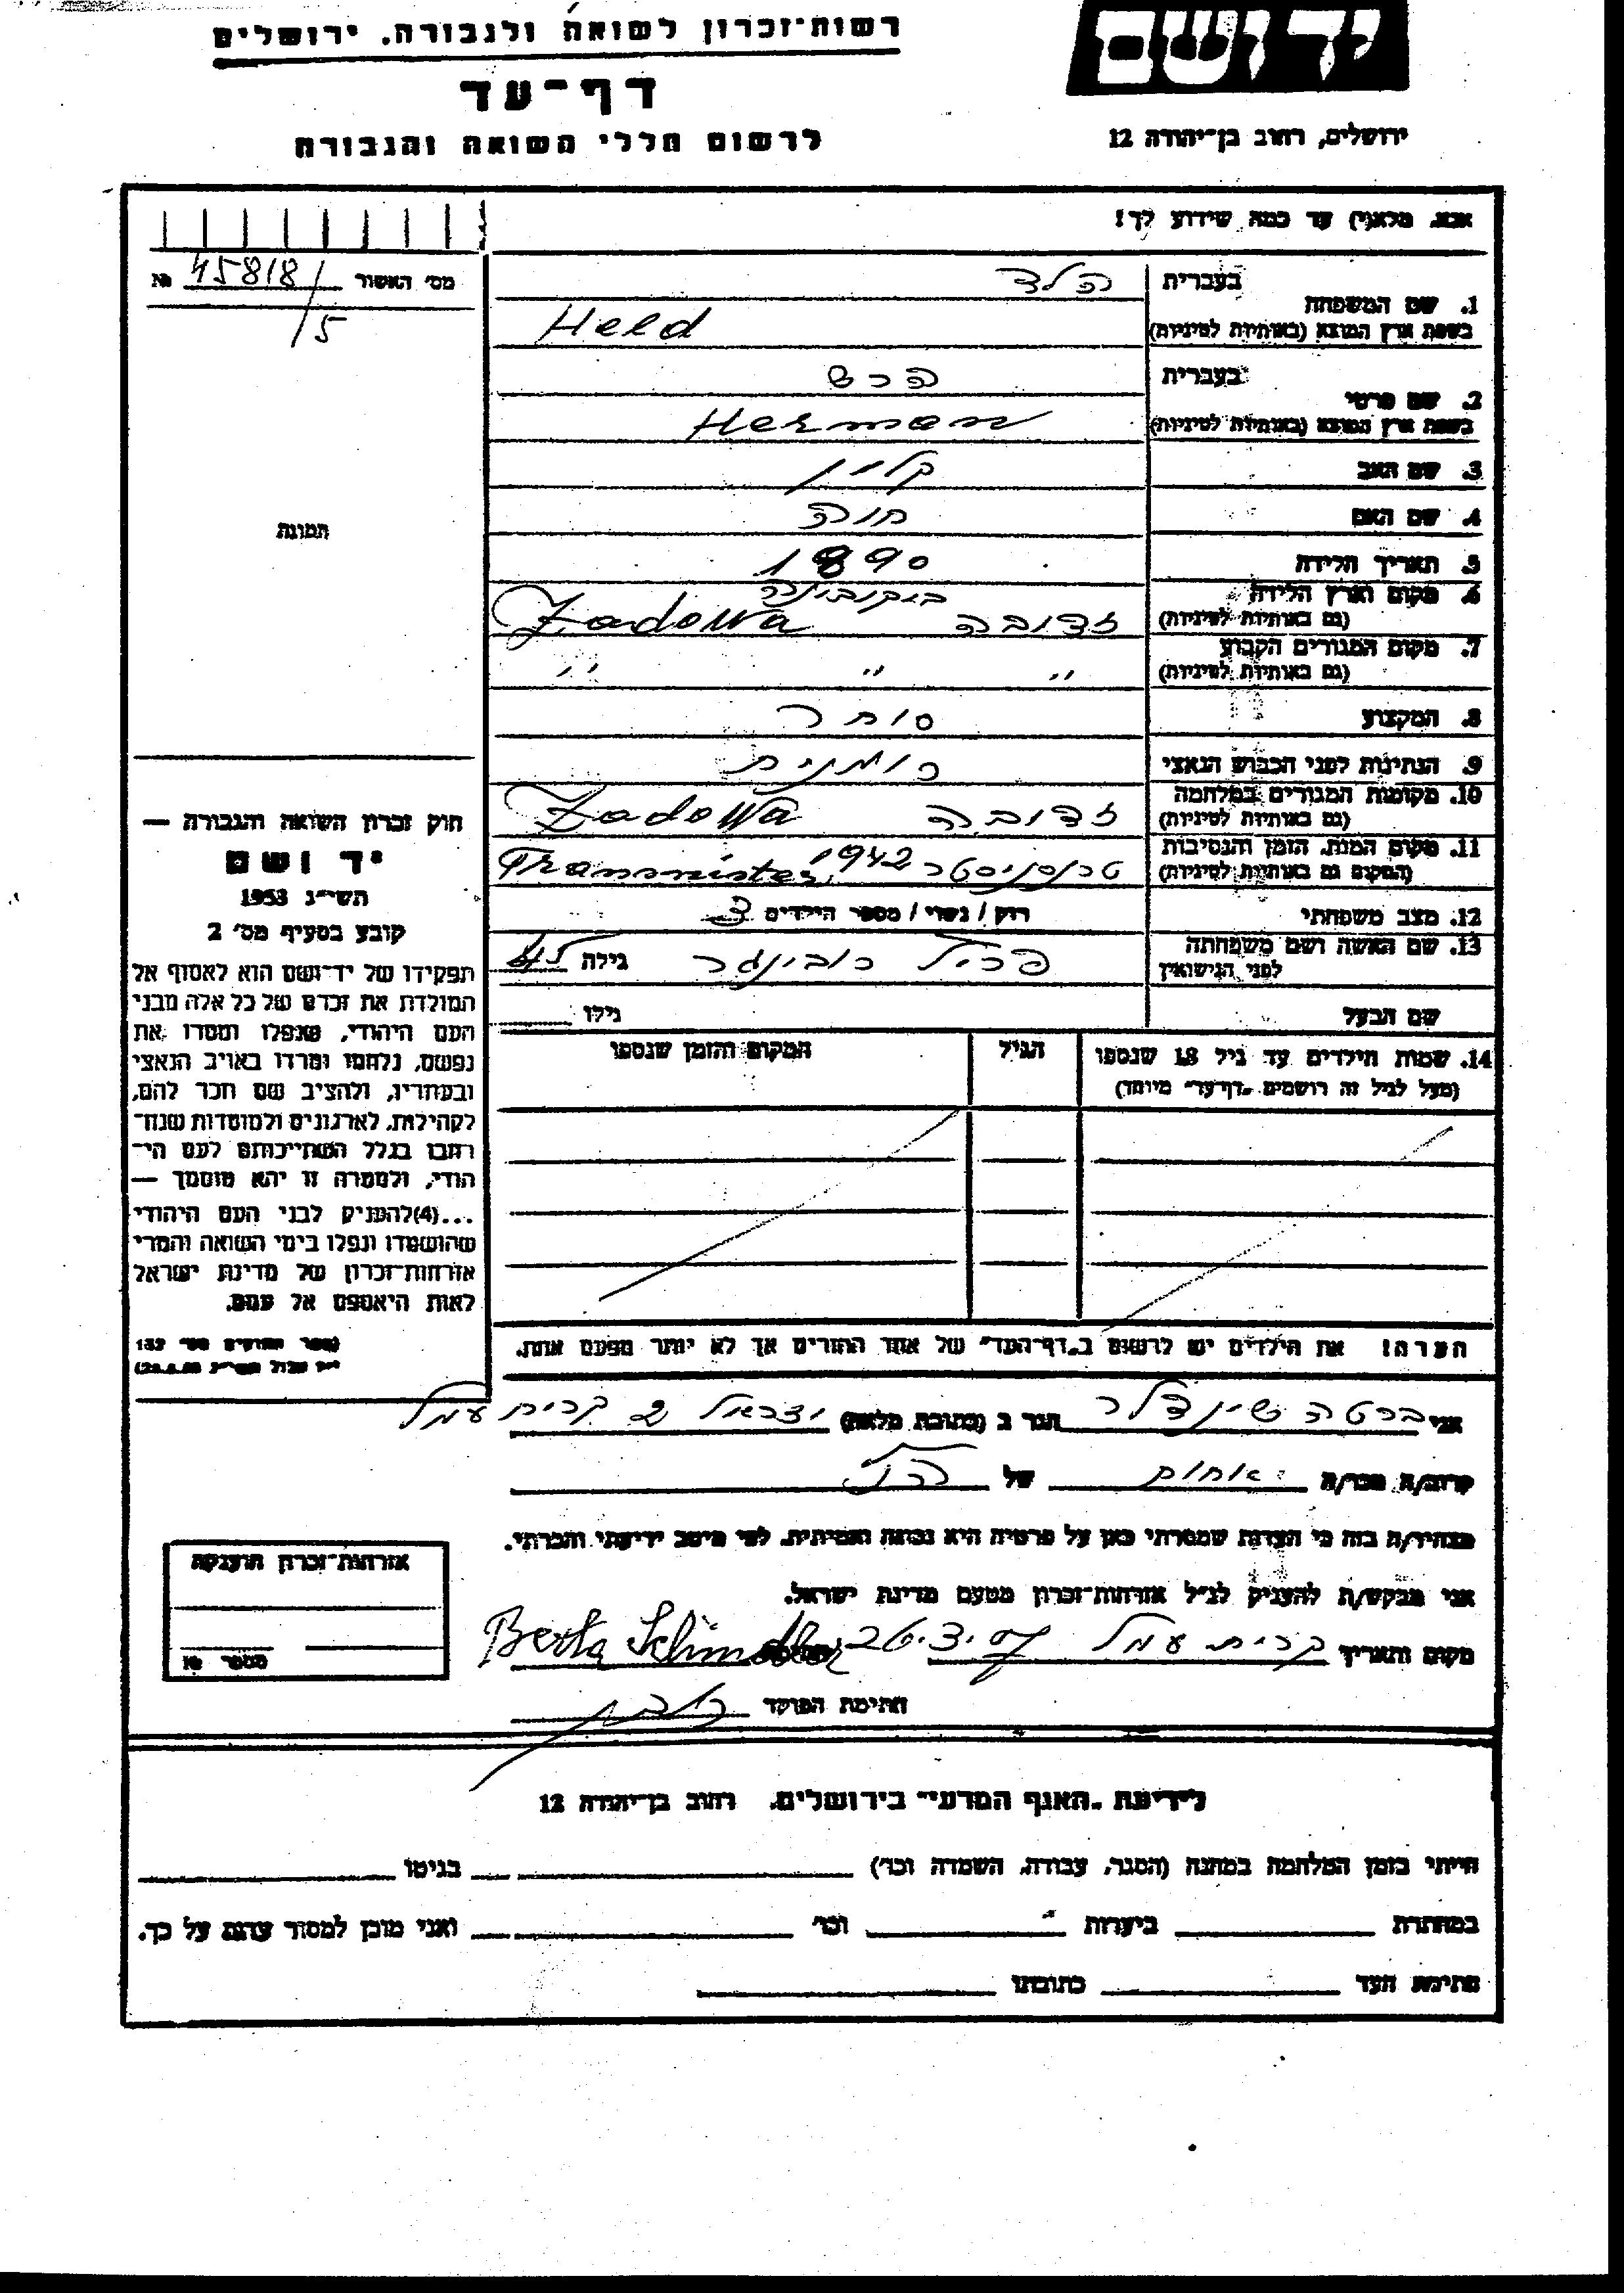 רשות־זכרון לשואה ולגבורה, ירושלים
יד ושם
דף־עד
לרשום חללי השואה והגבורה
ירושלים, רחוב בן־יהודה 12
אנא, מלא(י) עד כמה שידוע לך!
מס' האשור 45818/5 №
תמונה
1. שם המשפחה
בעברית הלד
בשפת ארץ המוצא (באותיות לטיניות) Held
2. שם פרטי
בעברית הרש
בשפת ארץ המוצא (באותיות לטיניות) Herman
3. שם האב קליין
4. שם האם חוה
5. תאריך הלידה 1890
6. מקום וארץ הלידה בוקובינה
(גם באותיות לטיניות) זדובה Zadowa
7. מקום המגורים הקבוע
(גם באותיות לטיניות) " " "
8. המקצוע סוחר
9. הנתינות לפני הכבוש הנאצי רומנית
10. מקומות המגורים במלחמה
(גם באותיות לטיניות) זדובה Zadowa
11. מקום המות, הזמן והנסיבות
(המקום גם באותיות לטיניות) טרנסניסטר 1942 Transnister
12. מצב משפחתי רווק / נשוי / מספר הילדים 3
13. שם האשה ושם משפחתה
לפני הנישואין פריל רובינגר גילה 45
שם הבעל גילו
14. שמות הילדים עד גיל 18 שנספו הגיל המקום והזמן שנספו
(מעל לגיל זה רושמים „דף־עד" מיוחד)
הערה! את הילדים יש לרשום ב„דף־העד" של אחד ההורים אך לא יותר מפעם אחת.
חוק זכרון השואה והגבורה —
יד ושם
תשי"ג 1953
קובע בסעיף מס' 2
תפקידו של יד־ושם הוא לאסוף אל
המולדת את זכרם של כל אלה מבני
העם היהודי, שנפלו ומסרו את
נפשם, נלחמו ומרדו באויב הנאצי
ובעוזריו, ולהציב שם וזכר להם,
לקהילות, לארגונים ולמוסדות שנח־
רבו בגלל השתייכותם לעם הי־
הודי, ולמטרה זו יהא מוסמך —
...(4) להעניק לבני העם היהודי
שהושמדו ונפלו בימי השואה והמרי
אזרחות־זכרון של מדינת ישראל
לאות היאספם אל עמם.
(ספר החוקים מס' 132
אני ברטה שינדלר הגר ב (כתובת מלאה) יזרעאל 2 קרית עמל
קרוב/ה מכר/ה אחות של הנ"ל
מצהיר/ה בזה כי העדות שמסרתי כאן על פרטיה היא נכונה ואמיתית, לפי מיטב ידיעתי והכרתי.
אני מבקש/ת להעניק לנ"ל אזרחות־זכרון מטעם מדינת ישראל.
מקום ותאריך קרית עמל Berta Schindler
חתימת הפוקד
אזרחות־זכרון הוענקה
מספר №
לידיעת „האגף המדעי" בירושלים, רחוב בן־יהודה 12
הייתי בזמן המלחמה במחנה (הסגר, עבודה, השמדה וכו') בגיטו
במחתרת ביערות וכו' ואני מוכן למסור עדות על כך.
חתימת העד כתובתו